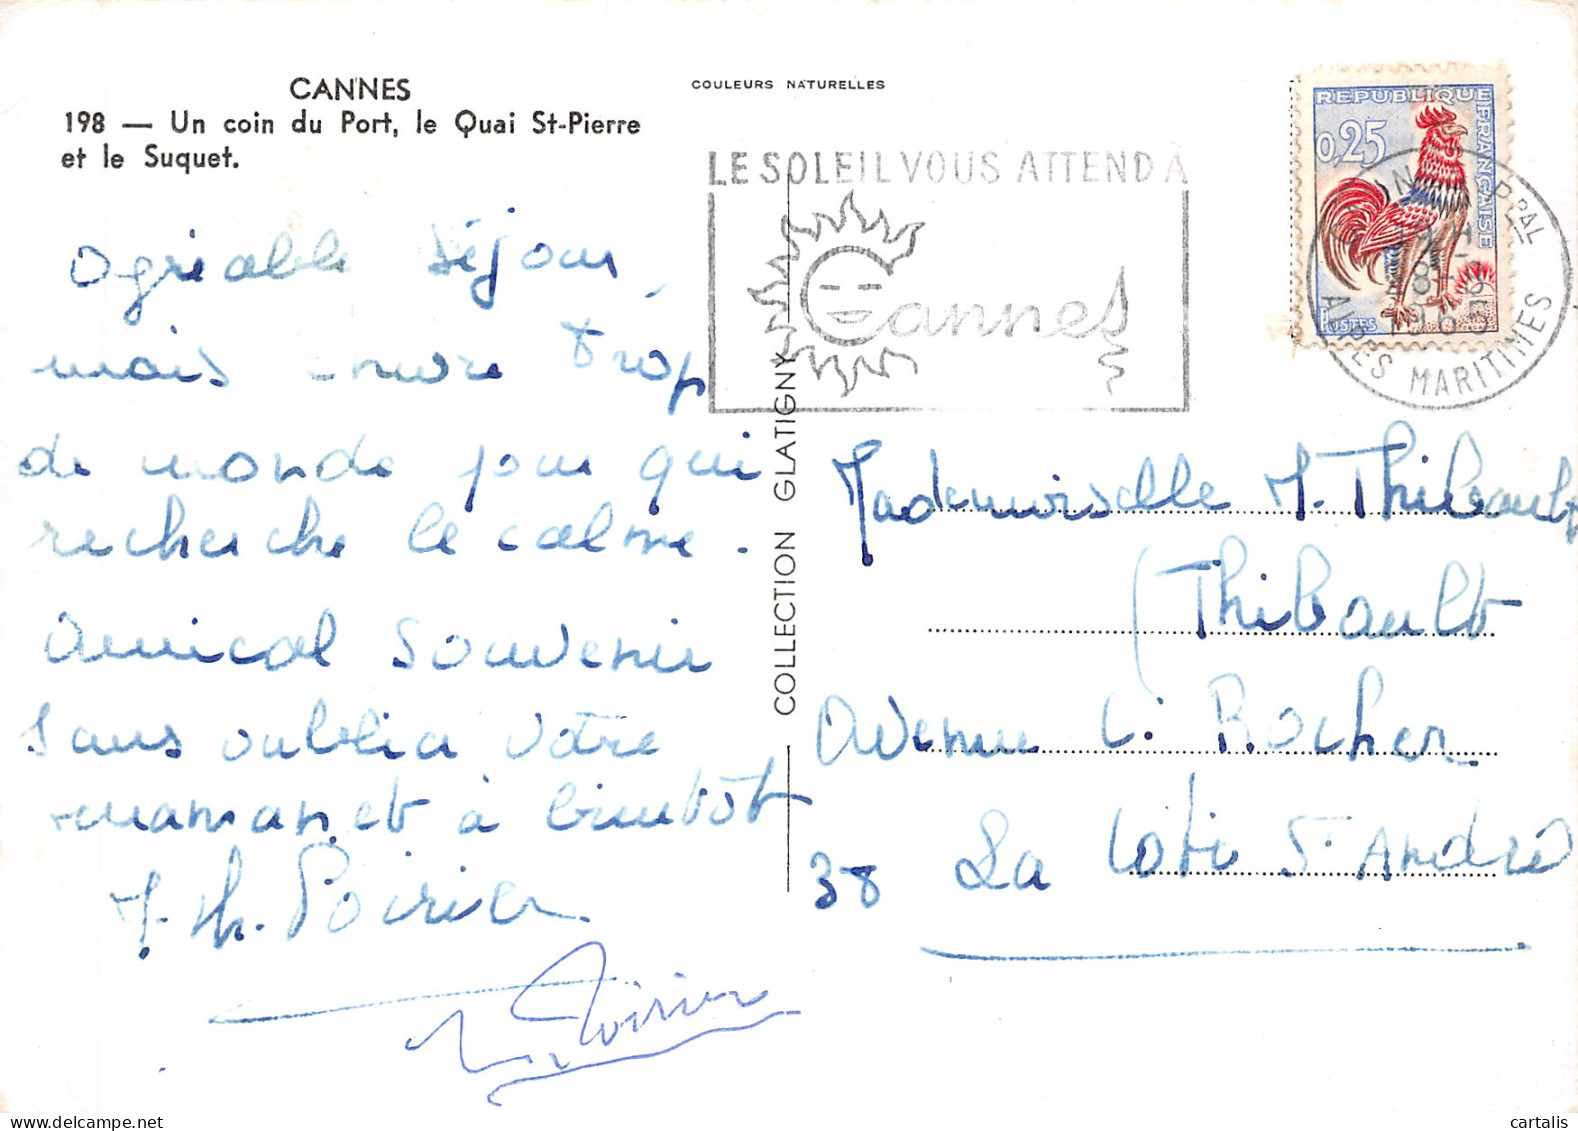 CANNES
198 — Un coin du Port, le Quai St-Pierre
et le Suquet.
COULEURS NATURELLES
REPUBLIQUE FRANÇAISE
0,25
POSTES
LE SOLEIL VOUS ATTEND À
Cannes
PPAL
ALPES MARITIMES
Agréable séjour,
mais encore trop
de monde pour qui
recherche le calme.
Amical souvenir
sans oublier votre
maman et à bientôt
M. Th. Poirier
Poirier
COLLECTION GLATIGNY
Mademoiselle M. Thibault
(Thibault
Avenue C. Rocher
38 La Côte St André
cartalis